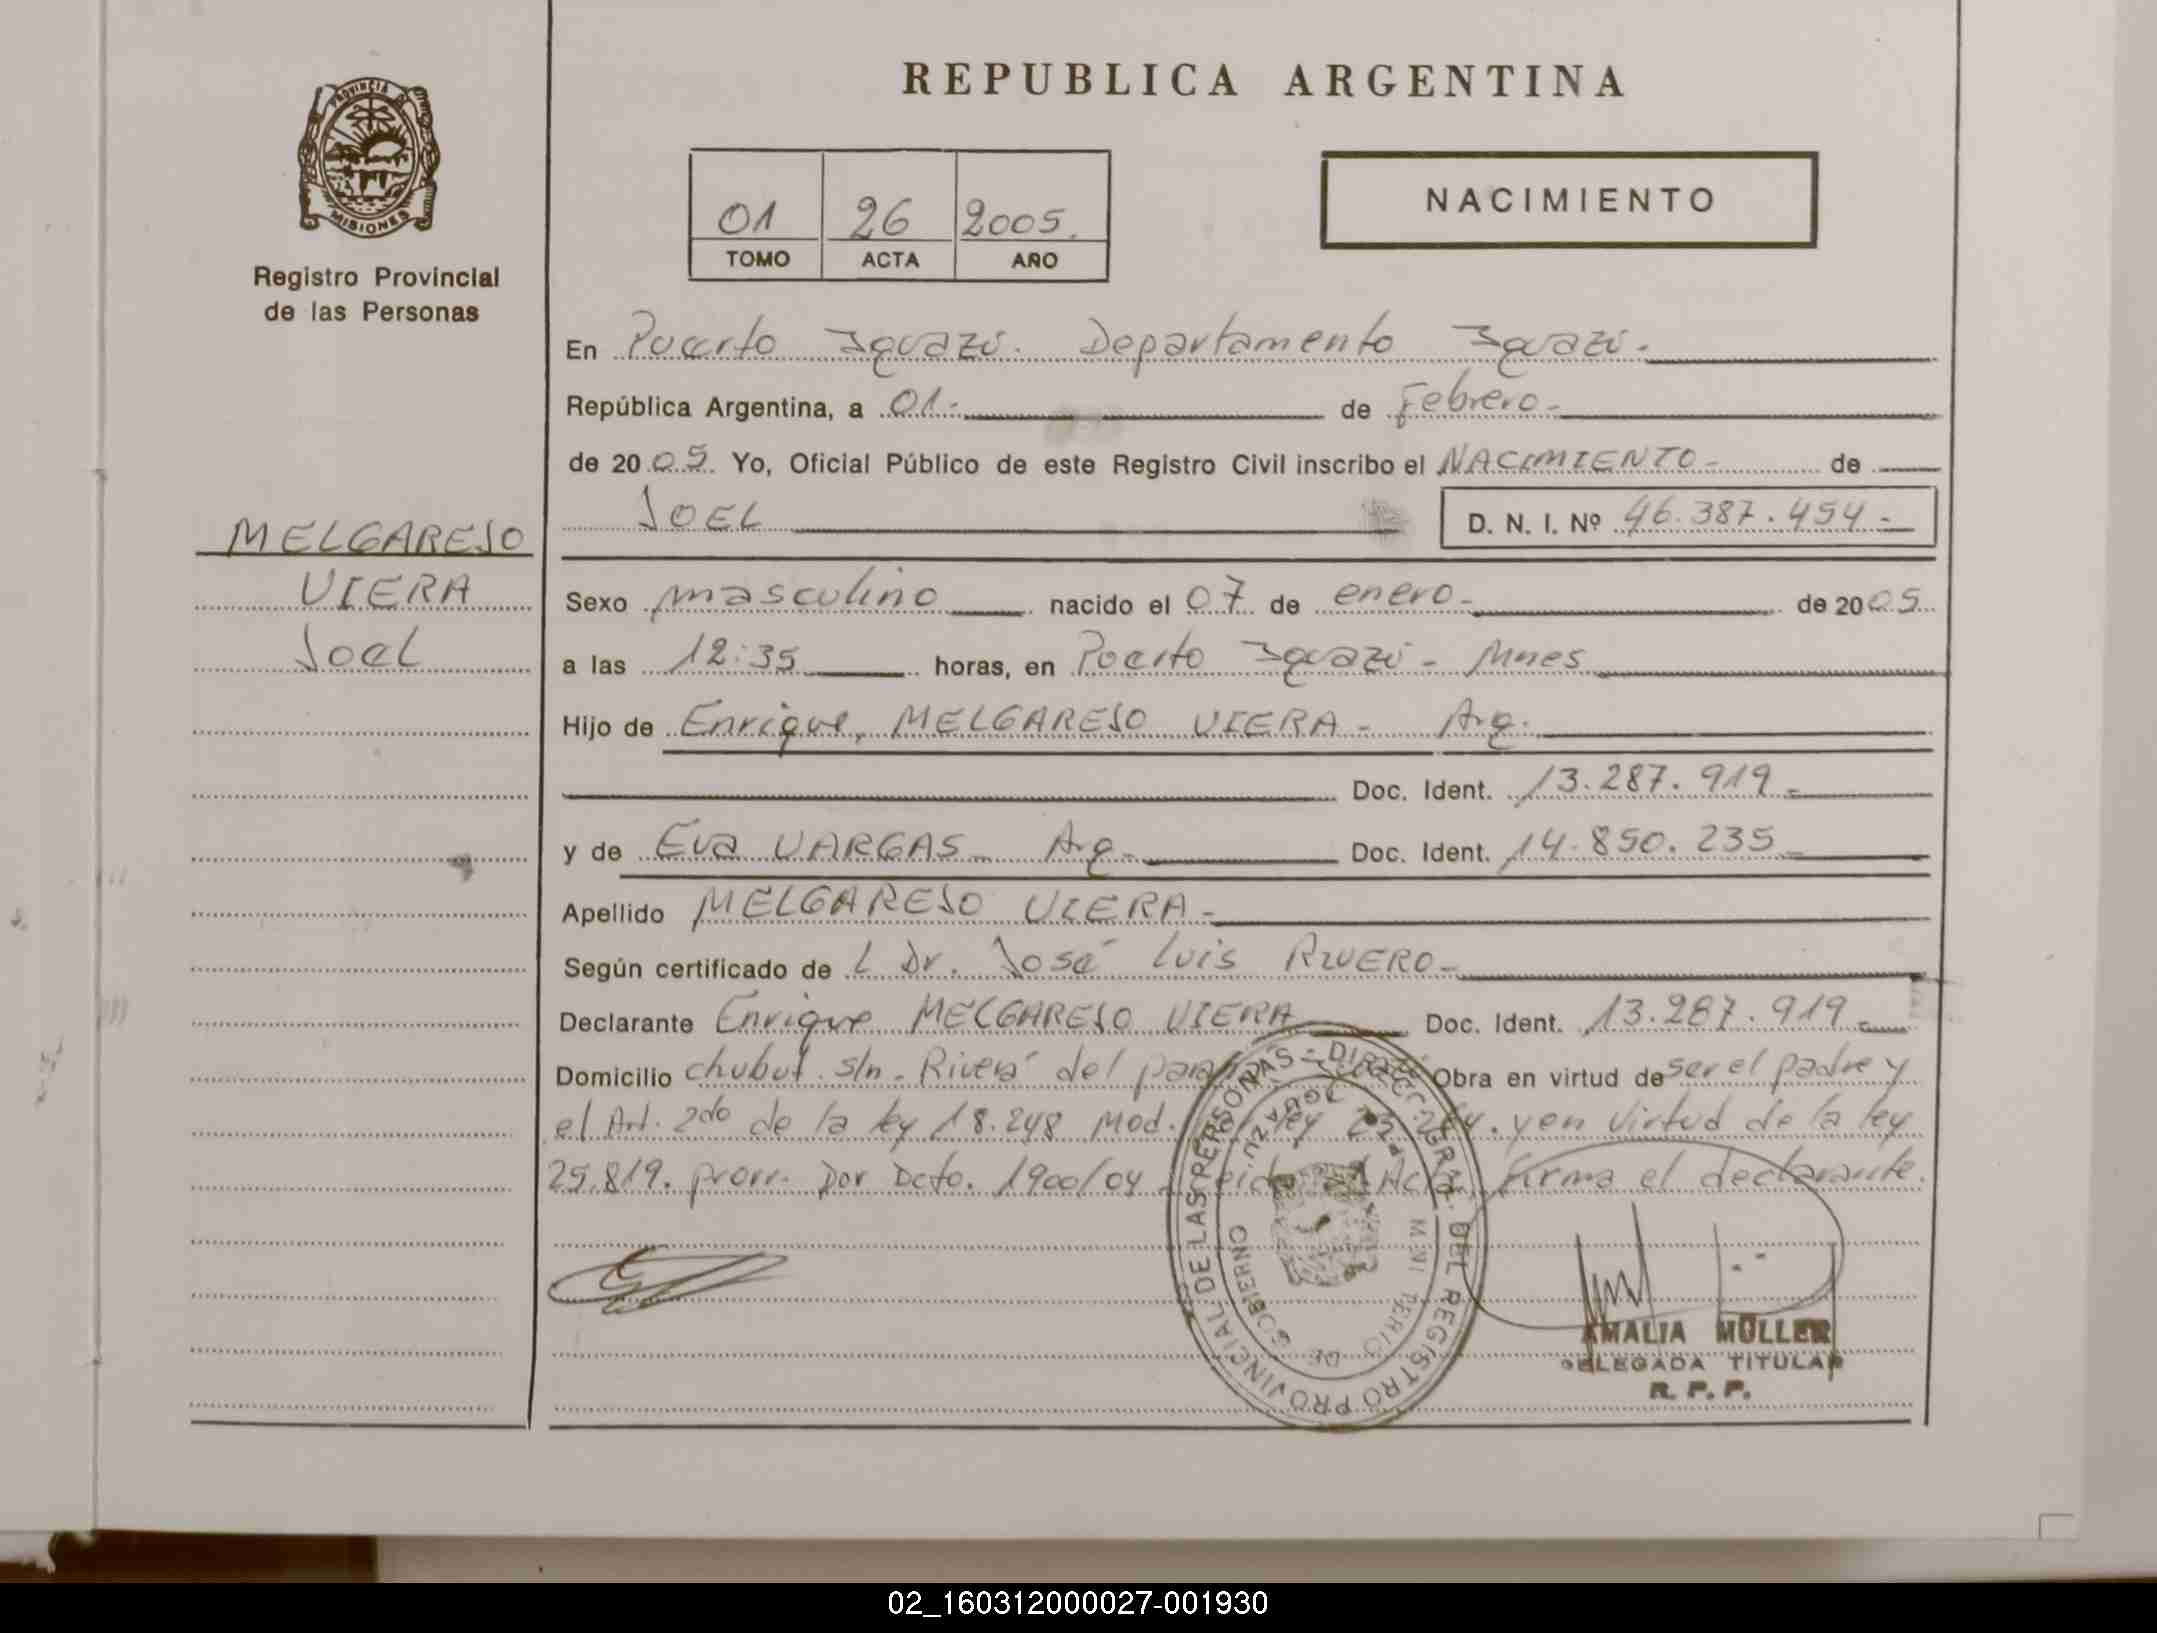 REPUBLICA ARGENTINA
PROVINCIA DE
MISIONES
Registro Provincial
de las Personas
01 26 2005.
TOMO ACTA AÑO
NACIMIENTO
En Puerto Iguazú. Departamento Iguazú.
República Argentina, a 01- de Febrero-
de 2005. Yo, Oficial Público de este Registro Civil inscribo el NACIMIENTO- de
JOEL D. N. I. Nº 46.387.454-
MELGAREJO
VIERA
Joel
Sexo masculino nacido el 07 de enero- de 2005
a las 12:35 horas, en Puerto Iguazú - Mnes
Hijo de Enrique, MELGAREJO VIERA- Arg.
Doc. Ident. 13.287.919-
y de Eva VARGAS- Arg- Doc. Ident. 14.850.235-
Apellido MELGAREJO VIERA-
Según certificado de L Dr. José Luis RIVERO-
Declarante Enrique MELGAREJO VIERA Doc. Ident. 13.287.919-
Domicilio chubut s/n. Rivera del Obra en virtud de ser el padre y
el Art. 2do de la ley 18.248 Mod. ley 23.264. y en virtud de la ley
25.819. prorr. por Dcto. 1900/04 Acta, firma el declarante.
DIRECC. GRAL. DEL REGISTRO PROVINCIAL DE LAS PERSONAS -
MINISTERIO DE GOBIERNO
AMALIA MÜLLER
DELEGADA TITULAR
R. P. P.
02_160312000027-001930